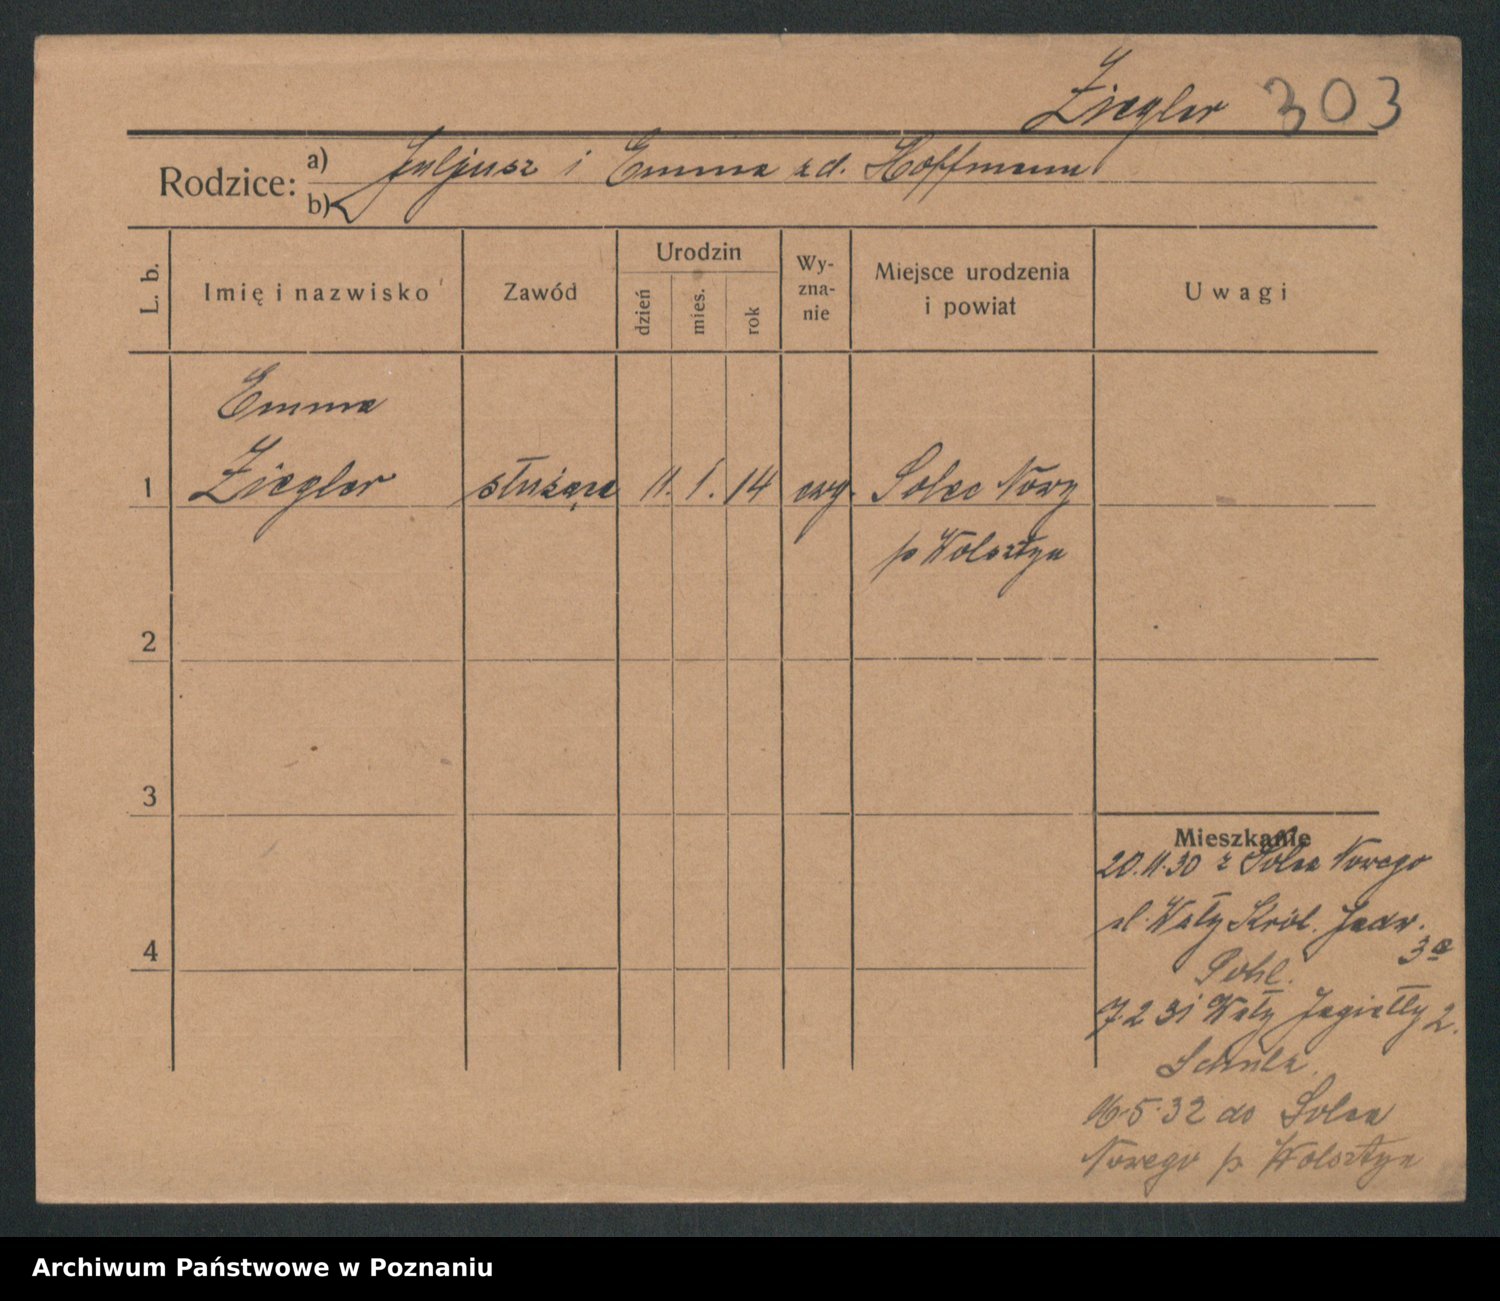 Ziegler 303
Rodzice: a) Juljusz i Emma zd. Hoffmann
b)
L. b.
Imię i nazwisko
Zawód
Urodzin
dzień
mies.
rok
Wy-
zna-
nie
Miejsce urodzenia
i powiat
Uwagi
Emma
1 Ziegler służąca 11. 1. 14 ewg. Solec Nowy
p Wolsztyn
2
3
4
Mieszkanie
20.11.30 z Solca Nowego
ul. Wały Król. Jadw.
3a
Pohl.
7.2 31 Wały Jagiełły 2.
Schulz
16.5.32 do Solca
Nowego p Wolsztyn
Archiwum Państwowe w Poznaniu